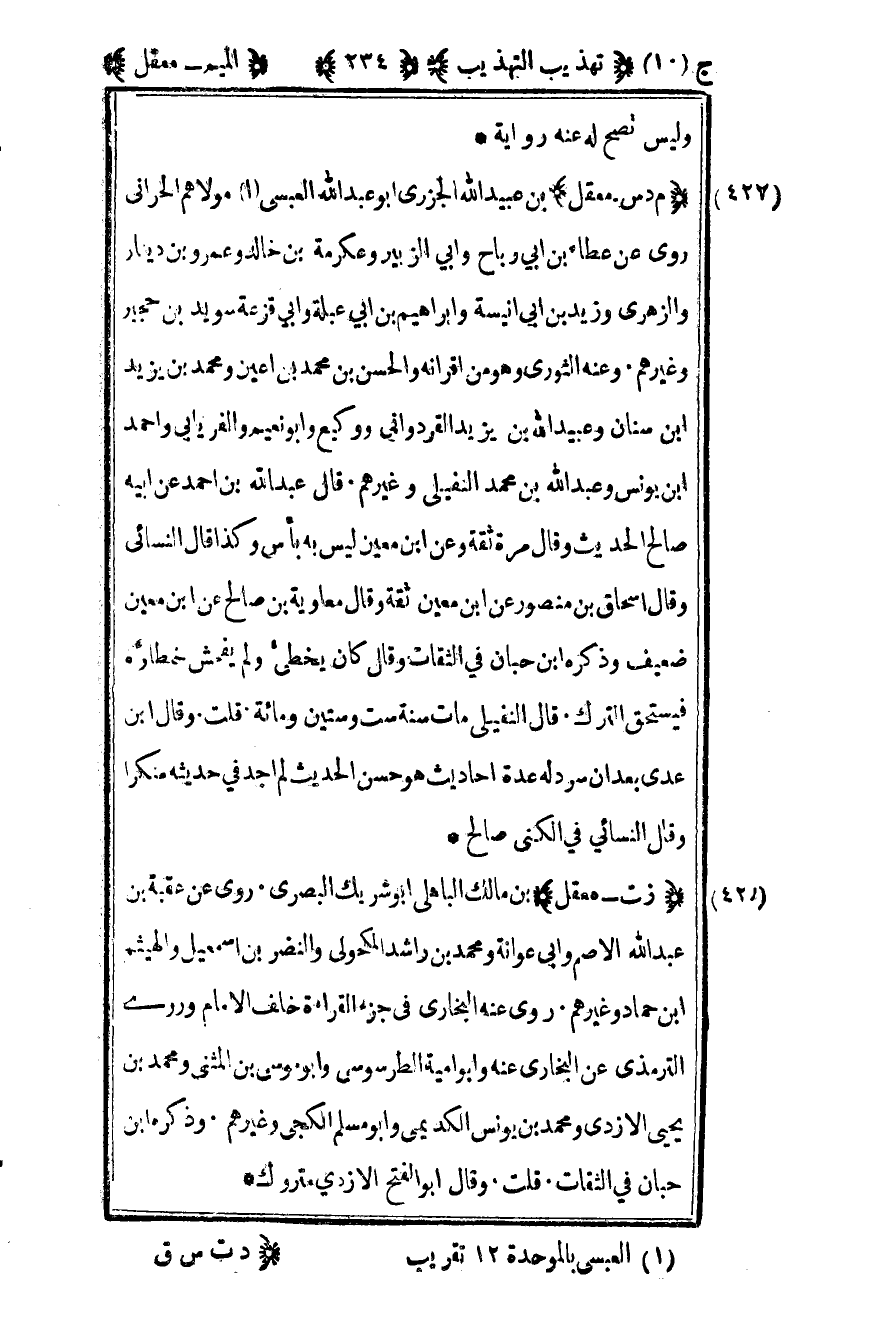 ج (١٠) ﴿ تهذيب التهذيب ﴾ ﴿ ٢٣٤ ﴾ ﴿ الميم ـ معقل ﴾
وليس تصح له عنه رواية *
(٤٢٢) ﴿ م د س ـ معقل ﴾ بن عبيدالله الجزرى ابو عبدالله العبسى (١) مولاهم الحرانى
روى عن عطاء بن ابي رباح وابي الزبير وعكرمة بن خالد وعمرو بن دينار
والزهرى وزيد بن ابى انيسة وابراهيم بن ابي عبلة وابي قزعة سويد بن حجير
وغيرهم · وعنه الثورى وهو من اقرانه والحسن بن محمد بن اعين ومحمد بن يزيد
ابن سنان وعبيدالله بن يزيد القردوانى ووكيع وابو نعيم والفريابي واحمد
ابن يونس وعبدالله بن محمد النفيلى وغيرهم · قال عبدالله بن احمد عن ابيه
صالح الحديث وقال مرة ثقة وعن ابن معين ليس به بأس وكذا قال النسائى
وقال اسحاق بن منصور عن ابن معين ثقة وقال معاوية بن صالح عن ابن معين
ضعيف وذكره ابن حبان في الثقات وقال كان يخطئ ولم يفحش خطاؤه
فيستحق الترك · قال النفيلى مات سنة ست وستين ومائة · قلت · وقال ابن
عدى بعدان سرد له عدة احاديث هو حسن الحديث لم اجد في حديثه منكرا
وقال النسائي في الكنى صالح *
﴿ ز ت ـ معقل ﴾ بن مالك الباهلى ابو شريك البصرى · روى عن عقبة بن
عبدالله الاصم وابي عوانة ومحمد بن راشد المكحولى والنضر بن اسمعيل والهيثم
ابن حماد وغيرهم · روى عنه البخارى فى جزء القراءة خلف الامام وروى
الترمذى عن البخارى عنه وابو امية الطرسوسى وابو موسى بن المثنى ومحمد بن
يحيى الازدى ومحمد بن يونس الكديمى وابو مسلم الكجى وغيرهم · وذكره ابن
حبان في الثقات · قلت · وقال ابو الفتح الازدي متروك *
(١) العبسى بالموحدة ١٢ تقريب ﴿ د ت س ق